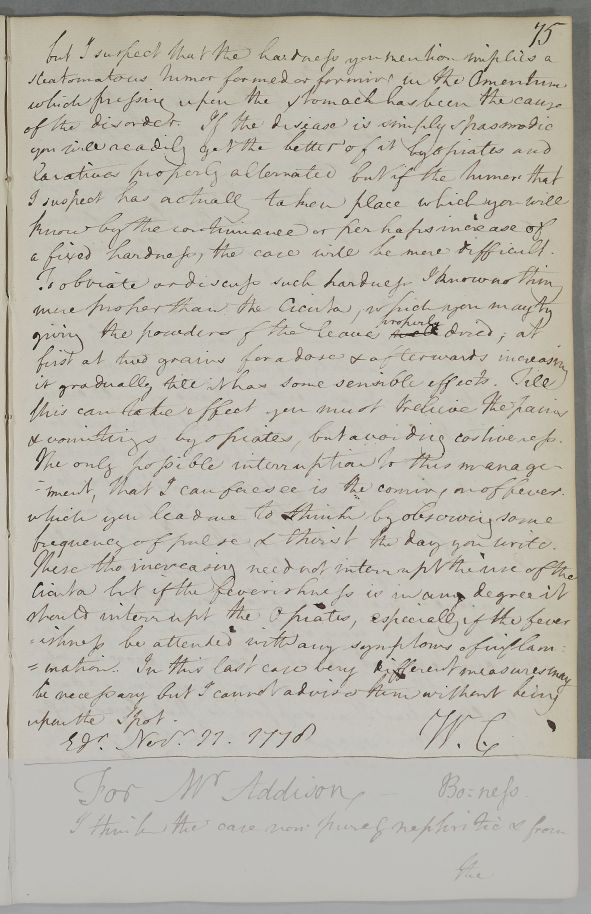 75
but I suspect that the hardness you mention implies a
steatomatous tumor formed or forming in the Omentum
which pressing upon the stomach has been the cause
of the disorder. If the disease is simply spasmodic
you will readily get the better of it by opiates and
laxatives properly alternated but if the tumor that
I suspect has actually taken place which you will
know by the continuance or perhaps increase of
a fixed hardness, the case will be more difficult.
To obviate or discuss such hardness I know nothing
more proper than the Cicuta, which you may try
giving the powder of the leaves properly dried; at
first at two grains for a dose & afterwards increasing
it gradually till it has some sensible effects. Till
this can take effect you must relieve the pains
& vomitings by opiates, but avoiding costiveness.
The only possible interruption to this manage-
-ment, that I can foresee is the coming on of fever
which you lead me to think by observing some
frequency of pulse & thirst the day you write.
These tho increasing need not interrupt the use of the
Cicuta but if the feverishness is in any degree it
should interrupt the Opiates, especially if the fever
-ishness be attended with any symptoms of inflam:
=mation. In this last case very different measures may
be necessary but I cannot advise them without being
upon the Spot.
Edr. Novr. 11. 1778 W. C.
For Mr Addison, — Bo:ness.
I think the case now purely nephritic & from
the